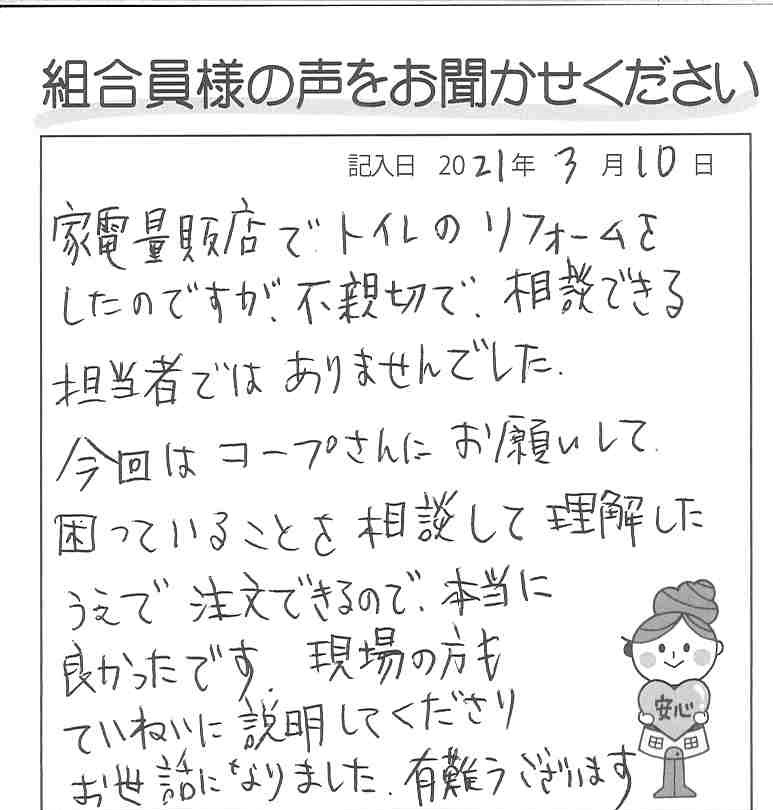 組合員様の声をお聞かせください
記入日 2021年 3月10日
家電量販店でトイレのリフォームを
したのですが、不親切で、相談できる
担当者ではありませんでした。
今回はコープさんにお願いして
困っていることを相談して理解した
うえで注文できるので、本当に
良かったです。現場の方も
ていねいに説明してくださり
お世話になりました。有難うございます
安心